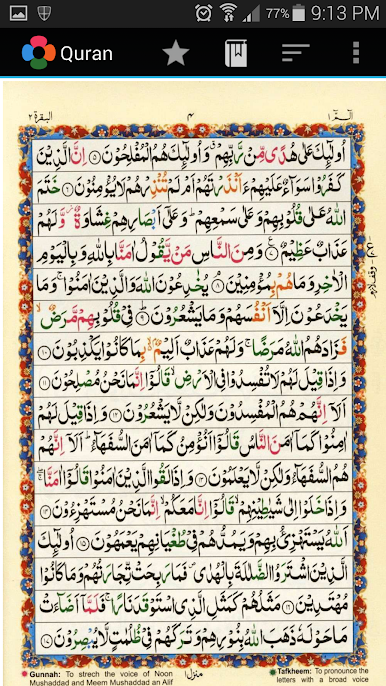 77% 9:13 PM
Quran
البقرة ٢
٤
الٓمّٓ ١
اُولٰٓئِكَ عَلٰى هُدًى مِّنْ رَّبِّهِمْ ۙ وَاُولٰٓئِكَ هُمُ الْمُفْلِحُوْنَ ۵ اِنَّ الَّذِيْنَ
كَفَرُوْا سَوَآءٌ عَلَيْهِمْ ءَاَنْذَرْتَهُمْ اَمْ لَمْ تُنْذِرْهُمْ لَا يُؤْمِنُوْنَ ۶ خَتَمَ
اللّٰهُ عَلٰى قُلُوْبِهِمْ وَعَلٰى سَمْعِهِمْ ؕ وَعَلٰٓى اَبْصَارِهِمْ غِشَاوَةٌ ۫ وَّلَهُمْ
عَذَابٌ عَظِيْمٌ ۷ وَمِنَ النَّاسِ مَنْ يَّقُوْلُ اٰمَنَّا بِاللّٰهِ وَبِالْيَوْمِ
الْاٰخِرِ وَمَا هُمْ بِمُؤْمِنِيْنَ ۸ يُخٰدِعُوْنَ اللّٰهَ وَالَّذِيْنَ اٰمَنُوْا ۚ وَمَا
يَخْدَعُوْنَ اِلَّآ اَنْفُسَهُمْ وَمَا يَشْعُرُوْنَ ۹ فِيْ قُلُوْبِهِمْ مَّرَضٌ ۙ
فَزَادَهُمُ اللّٰهُ مَرَضًا ۚ وَلَهُمْ عَذَابٌ اَلِيْمٌۢ ۙ بِمَا كَانُوْا يَكْذِبُوْنَ ۱۰
وَاِذَا قِيْلَ لَهُمْ لَا تُفْسِدُوْا فِي الْاَرْضِ ۙ قَالُوْٓا اِنَّمَا نَحْنُ مُصْلِحُوْنَ ۱۱
اَلَآ اِنَّهُمْ هُمُ الْمُفْسِدُوْنَ وَلٰكِنْ لَّا يَشْعُرُوْنَ ۱۲ وَاِذَا قِيْلَ لَهُمْ
اٰمِنُوْا كَمَآ اٰمَنَ النَّاسُ قَالُوْٓا اَنُؤْمِنُ كَمَآ اٰمَنَ السُّفَهَآءُ ؕ اَلَآ اِنَّهُمْ
هُمُ السُّفَهَآءُ وَلٰكِنْ لَّا يَعْلَمُوْنَ ۱۳ وَاِذَا لَقُوا الَّذِيْنَ اٰمَنُوْا قَالُوْٓا اٰمَنَّا ۖۚ
وَاِذَا خَلَوْا اِلٰى شَيٰطِيْنِهِمْ ۙ قَالُوْٓا اِنَّا مَعَكُمْ ۙ اِنَّمَا نَحْنُ مُسْتَهْزِءُوْنَ ۱۴
اَللّٰهُ يَسْتَهْزِئُ بِهِمْ وَيَمُدُّهُمْ فِيْ طُغْيَانِهِمْ يَعْمَهُوْنَ ۱۵ اُولٰٓئِكَ
الَّذِيْنَ اشْتَرَوُا الضَّلٰلَةَ بِالْهُدٰى ۪ فَمَا رَبِحَتْ تِّجَارَتُهُمْ وَمَا كَانُوْا
مُهْتَدِيْنَ ۱۶ مَثَلُهُمْ كَمَثَلِ الَّذِي اسْتَوْقَدَ نَارًا ۚ فَلَمَّآ اَضَآءَتْ
مَا حَوْلَهٗ ذَهَبَ اللّٰهُ بِنُوْرِهِمْ وَتَرَكَهُمْ فِيْ ظُلُمٰتٍ لَّا يُبْصِرُوْنَ ۱۷
Gunnah: To strech the voice of Noon Mushaddad and Meem Mushaddad an Alif
منزل ١
Tafkheem: To pronounce the letters with a broad voice